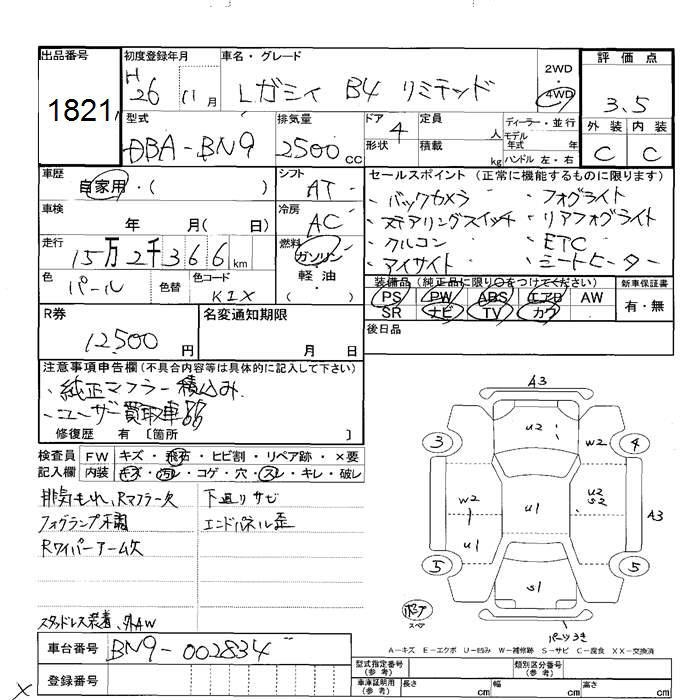 出品番号
1821
初度登録年月
H26 11月
車名・グレード
Lガシィ B4 リミテッド
2WD
・
4WD
評価点
3.5
外装 内装
C C
型式
DBA-BN9
排気量
2500cc
ドア 4
形状
定員 人
積載 kg
ディーラー・並行
モデル年式 年
ハンドル 左・右
車歴
自家用・( )
シフト
AT
車検
年 月( 日)
冷房
AC
走行
15万2千366km
燃料
ガソリン
軽油
( )
色 パール
色替
色コード KIX
セールスポイント (正常に機能するものに限ります)
・バックカメラ ・フォグライト
・ステアリングスイッチ ・リアフォグライト
・クルコン ・ETC
・アイサイト ・シートヒーター
装備品(純正品に限り○をつけてください) 新車保証書
PS PW ABS エアB AW 有・無
SR ナビ TV カワ
後日品
R券
12500円
名変通知期限
月 日
注意事項申告欄(不具合内容等は具体的に記入して下さい)
・純正マフラー積込み
・ユーザー買取車
修復歴 有 〔箇所 〕
検査員 FW キズ・飛石・ヒビ割・リペア跡・×要
記入欄 内装 キズ・汚れ・コゲ・穴・スレ・キレ・破レ
排気もれ、Rマフラー欠 下廻りサビ
フォグランプ不調 エンドパネル歪
Rワイパーアーム欠
スタッドレス装着、外AW
車台番号 BN9-002834
登録番号
A3
U2
3 W2 4
W2 U1 U2 S2 A3
U1
5 S1 5
スペア
パーツキズ
A-キズ E-エクボ U-凹み W-補修跡 S-サビ C-腐食 XX-交換済
型式指定番号(参考) 類別区分番号(参考)
車庫証明用(参考) 長さ cm 幅 cm 高さ cm
X